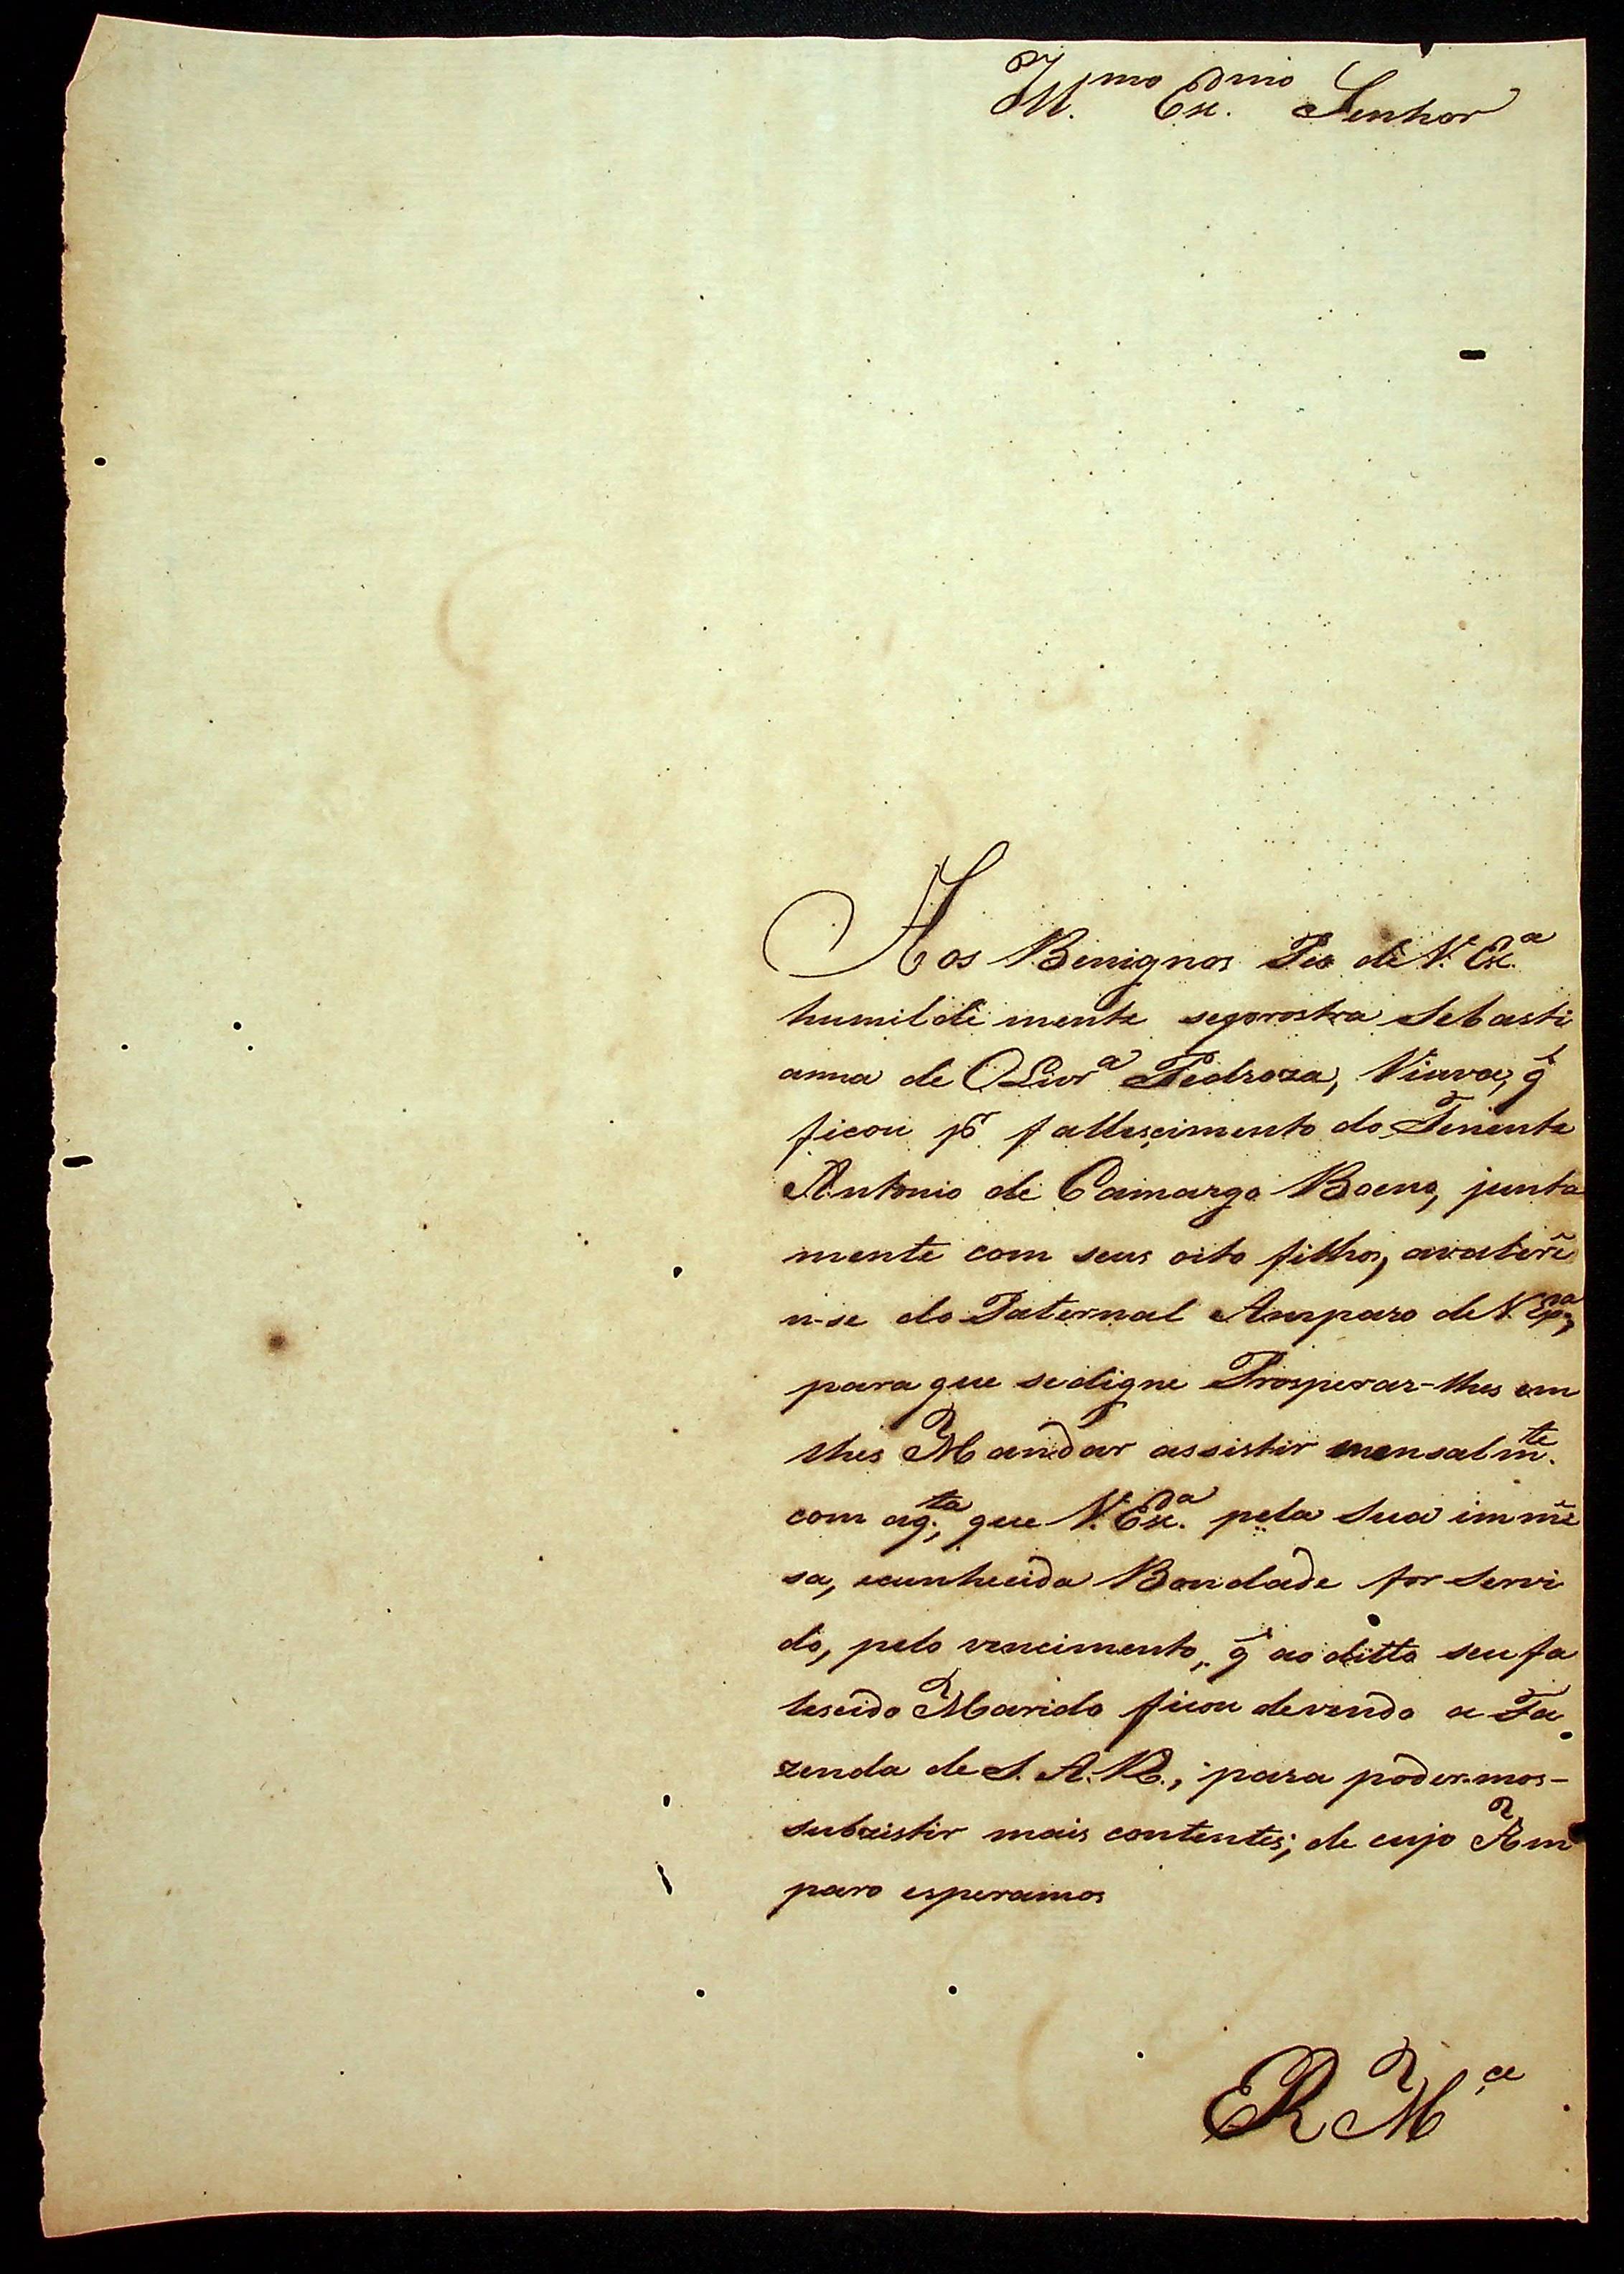 Ill.mo Ex.mo Senhor
Aos Benignos Pes de V. Ex.a
humildimente seprostra Sebasti
anna de Olivr.a Pedroza, Viuva, q̃
ficou p.r fallescimento do Tenente
Antonio de Camargo Boeno, junta
mente com seus oito filhos,
n-se do Paternal Amparo de V. Ex.a,
para que sedigne Prosperar-lhes em
lhes Mandar assistir mensalm.te
com aq.ta, que V. Ex.a pela Sua immẽ
sa, ecunhecida Bondade for Servi
do, pelo vencimento, q̃ ao ditto seu fa
lescido Marido ficou devendo a Fa
zenda de S. A. R., para podermos-
subzistir mais contentes; de cujo Am
paro esperamos
E R M.ce